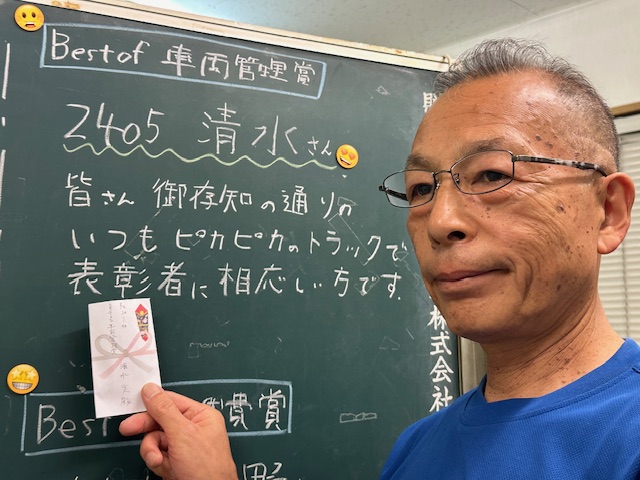 Best of 車両管理賞
2405 清水さん
皆さん 御存知の通りの
いつもピカピカのトラックで
表彰者に相応しい方です.
株式会社
Best
賞